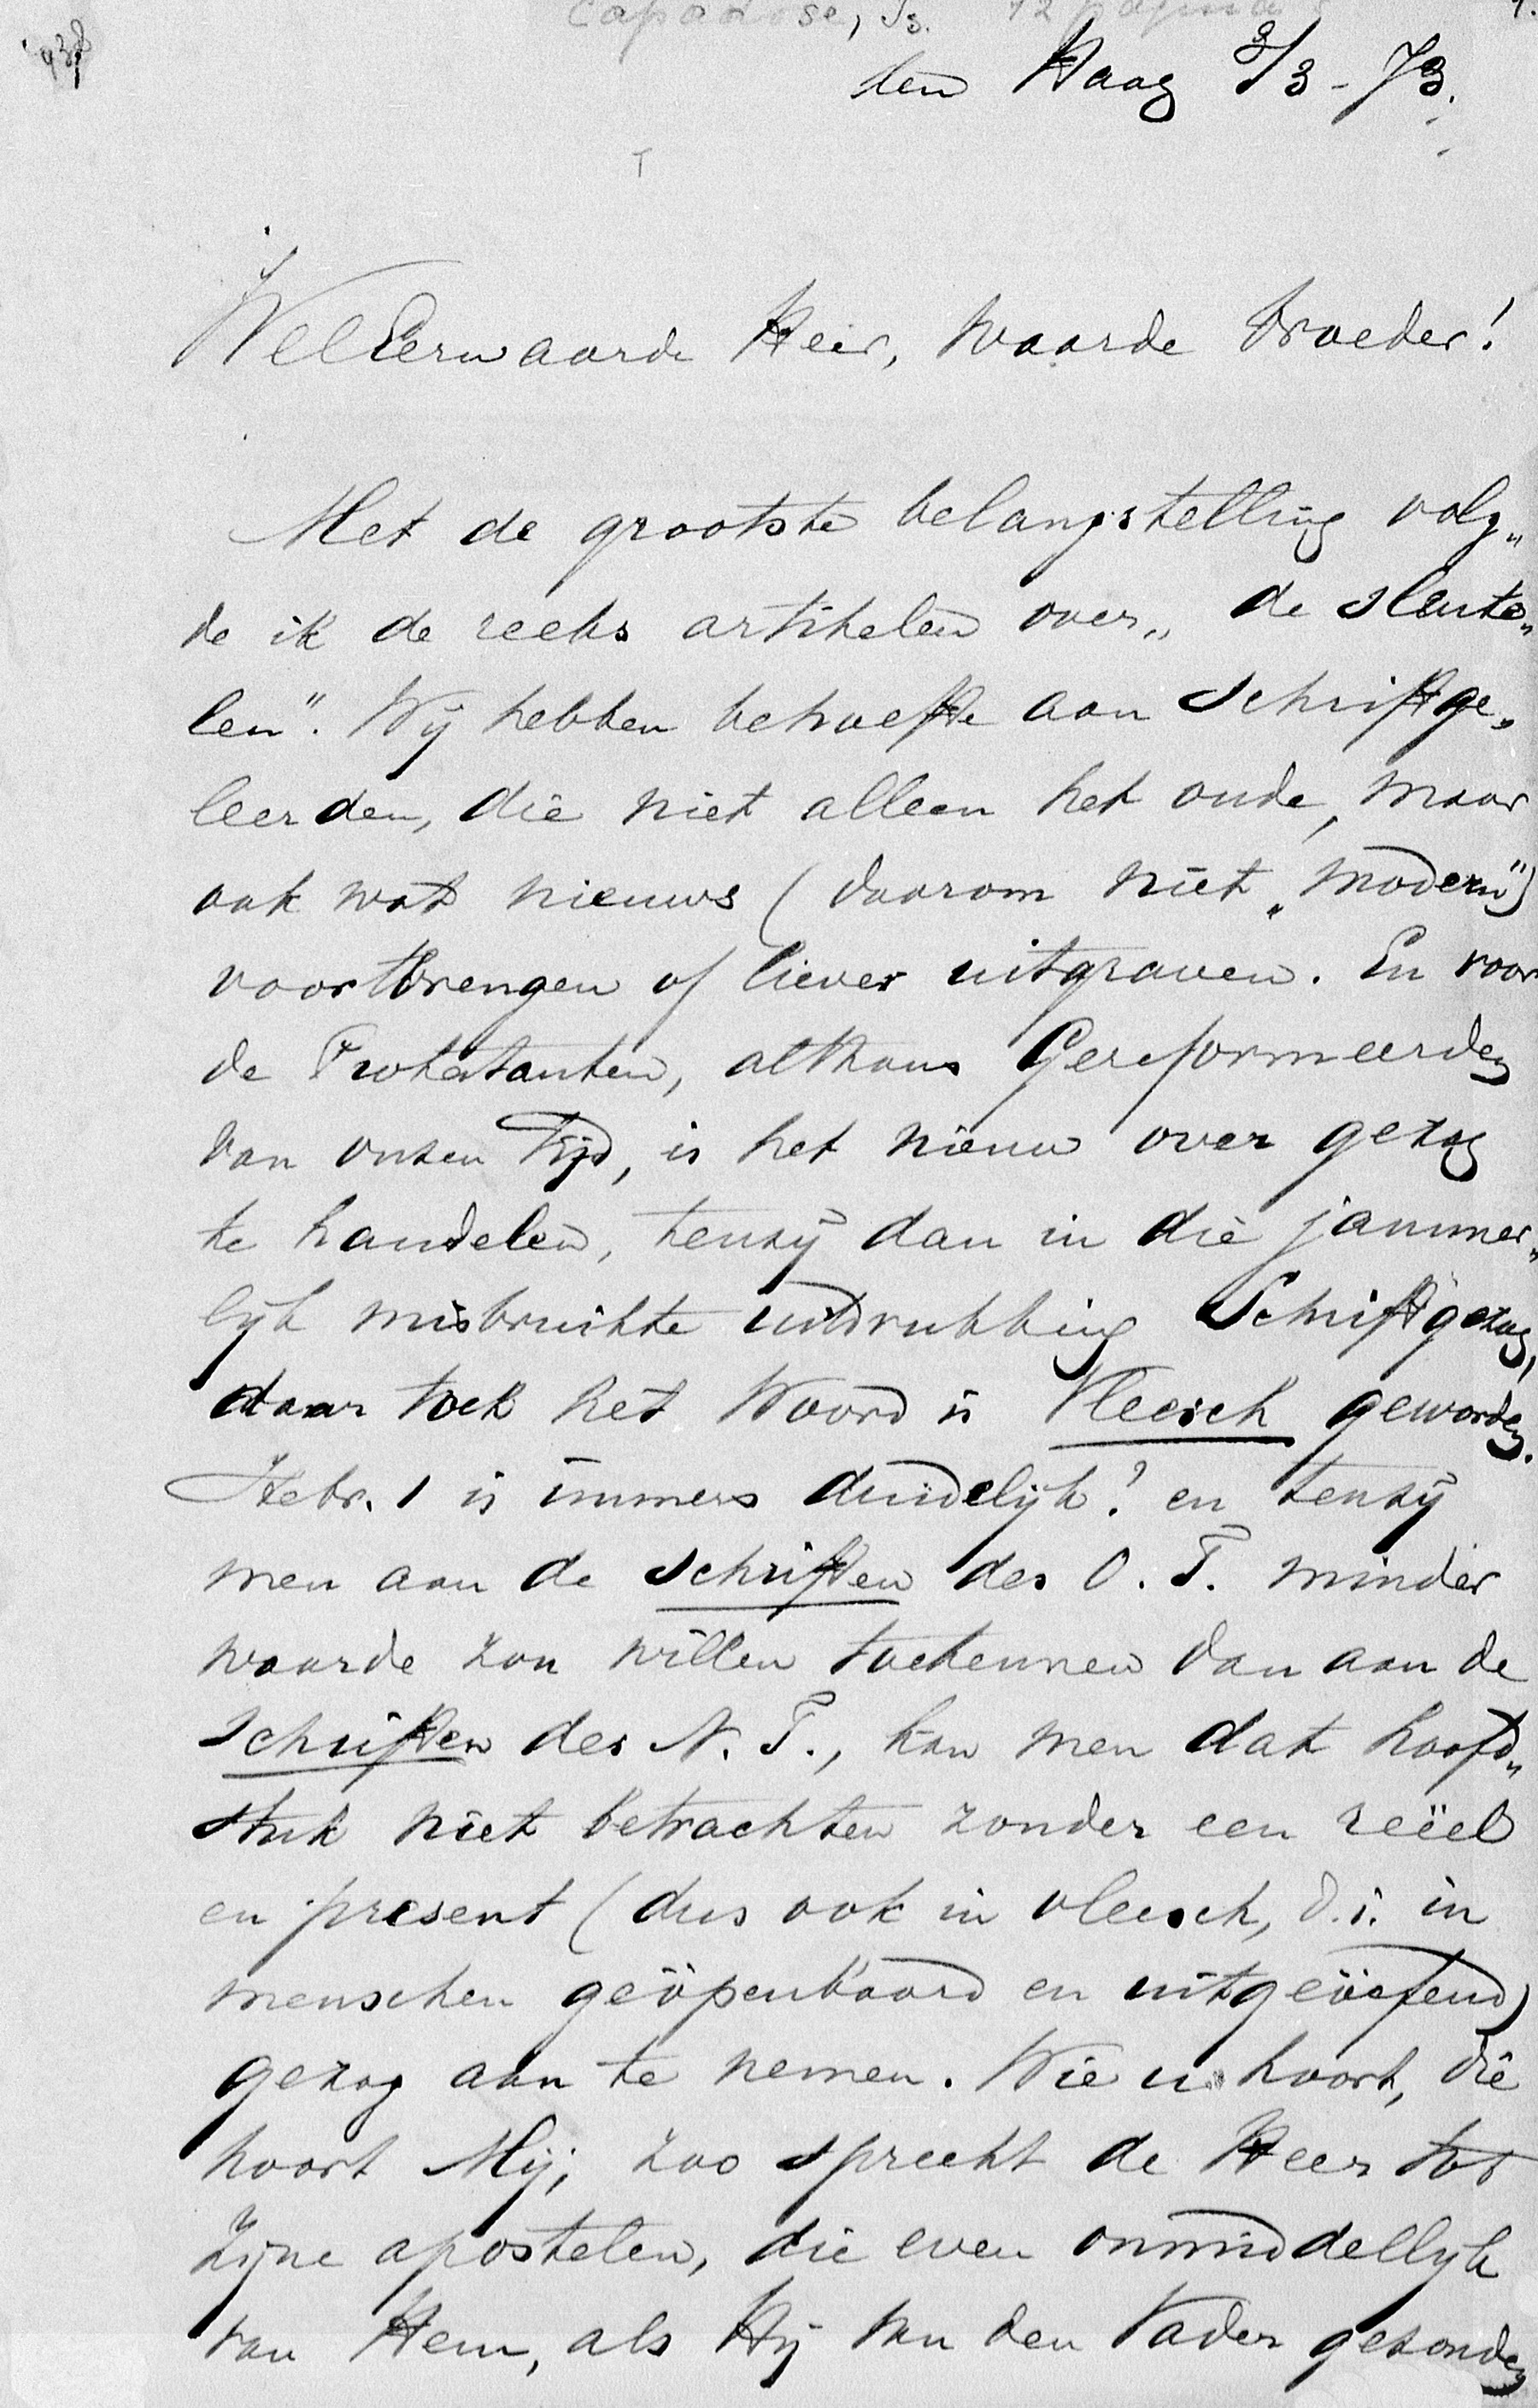 Capadose, Is. 12 pagina's 1.
den Haag 3/3-73.
WelEerwaarde Heer, Waarde Broeder!
Met de grootste belangstelling volg„
de ik de reeks artikelen over „de sleute„
len". Wij hebben behoefte aan Schriftge„
leerden, die niet alleen het oude, maar
ook wat nieuws (daarom niet „modern")
voortbrengen of liever uitgraven. En voor
de Protestanten, althans Gereformeerden
van onzen tijd, is het nieuw over gezag
te handelen, tenzij dan in die jammer„
lijk misbruikte uitdrukking Schriftgezag,
daar toch het Woord is Vleesch geworden.
Hebr. 1 is immers duidelijk? en tenzij
men aan de schriften des O. T. minder
waarde zou willen toekennen dan aan de
schriften des N. T., kan men dat hoofd„
stuk niet betrachten zonder een reëel
en present (dus ook in vleesch, d.i. in
menschen geöpenbaard en uitgeöefend)
gezag aan te nemen. Wie u hoort, die
hoort Mij, zoo spreekt de Heer tot
Zijne apostelen, die even onmiddellijk
van Hem, als Hij van den Vader gezonden